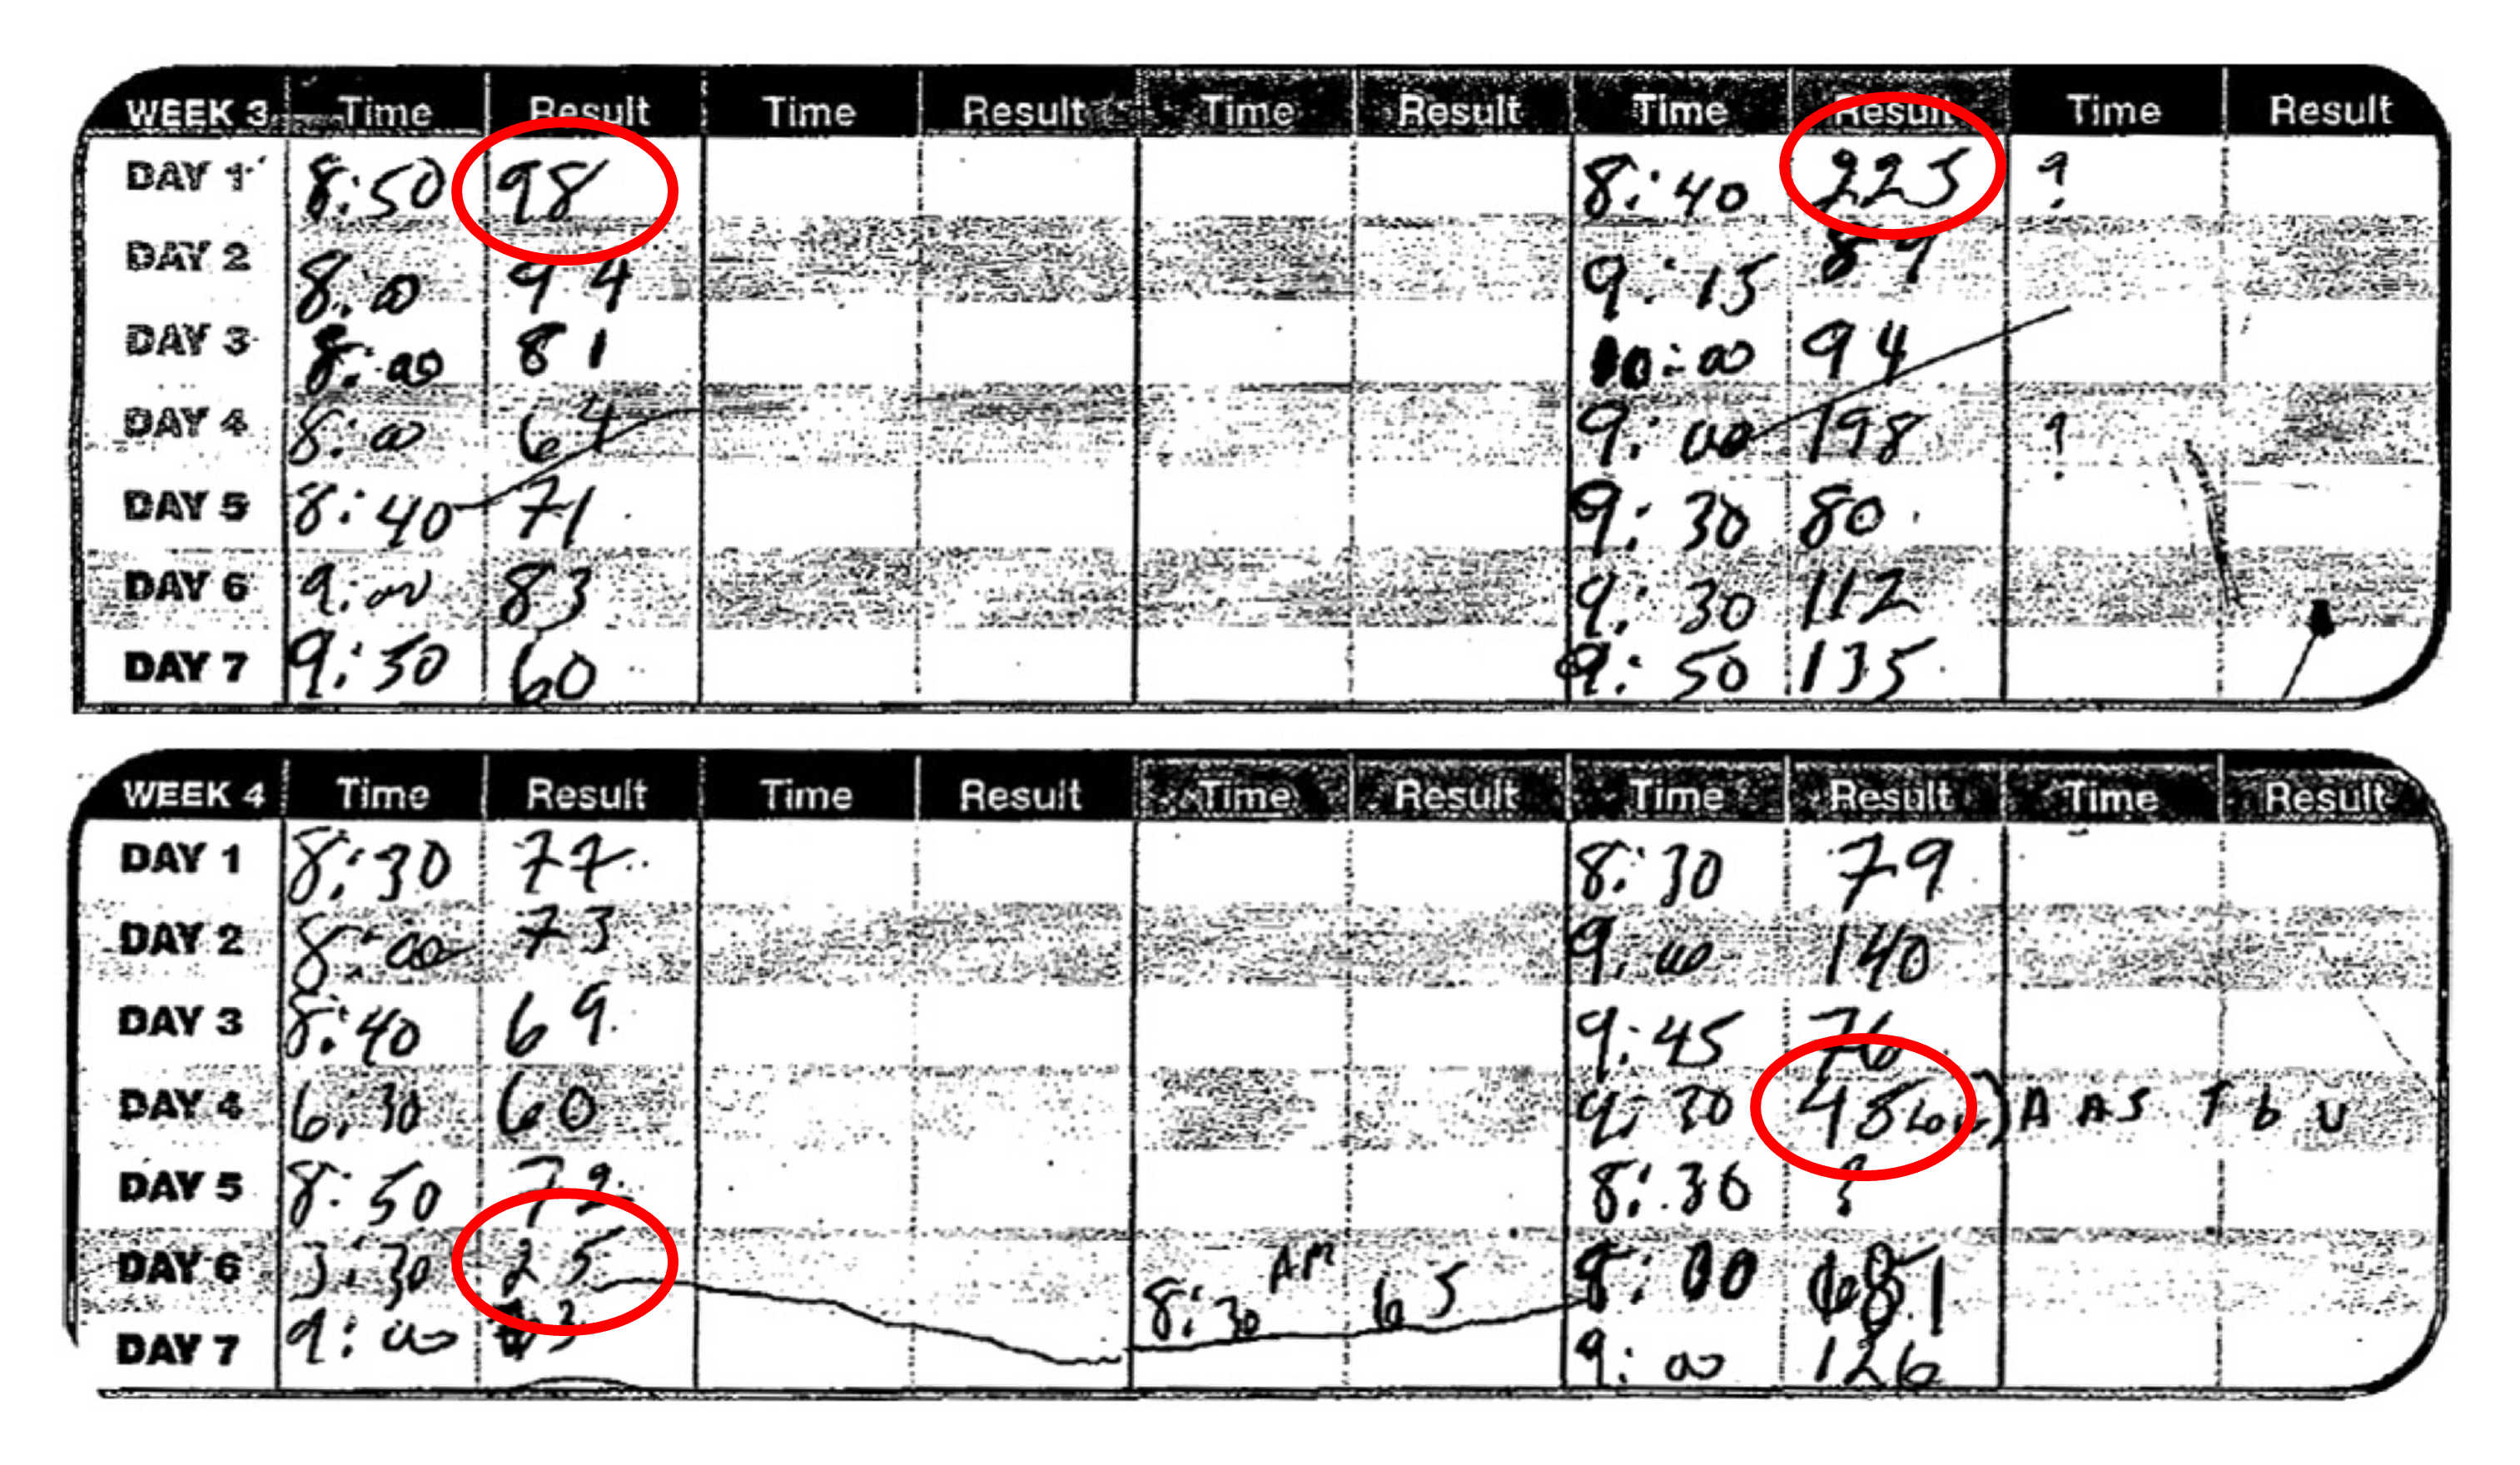 WEEK 3 Time Result Time Result Time Result Time Result Time Result
DAY 1 8:50 98 8:40 225 ?
DAY 2 8:00 94 9:15 89
DAY 3 8:00 81 10:00 94
DAY 4 8:00 64 9:00 198 ?
DAY 5 8:40 71 9:30 80
DAY 6 9:00 83 9:30 112
DAY 7 9:50 60 9:50 135
WEEK 4 Time Result Time Result Time Result Time Result Time Result
DAY 1 8:30 77 8:30 79
DAY 2 8:00 73 9:00 140
DAY 3 8:40 69 9:45 76
DAY 4 6:30 60 9:30 48
DAY 5 8:50 72 8:30 ?
DAY 6 3:30 25 8:30 AM 65
DAY 7 9:00 9:00 126